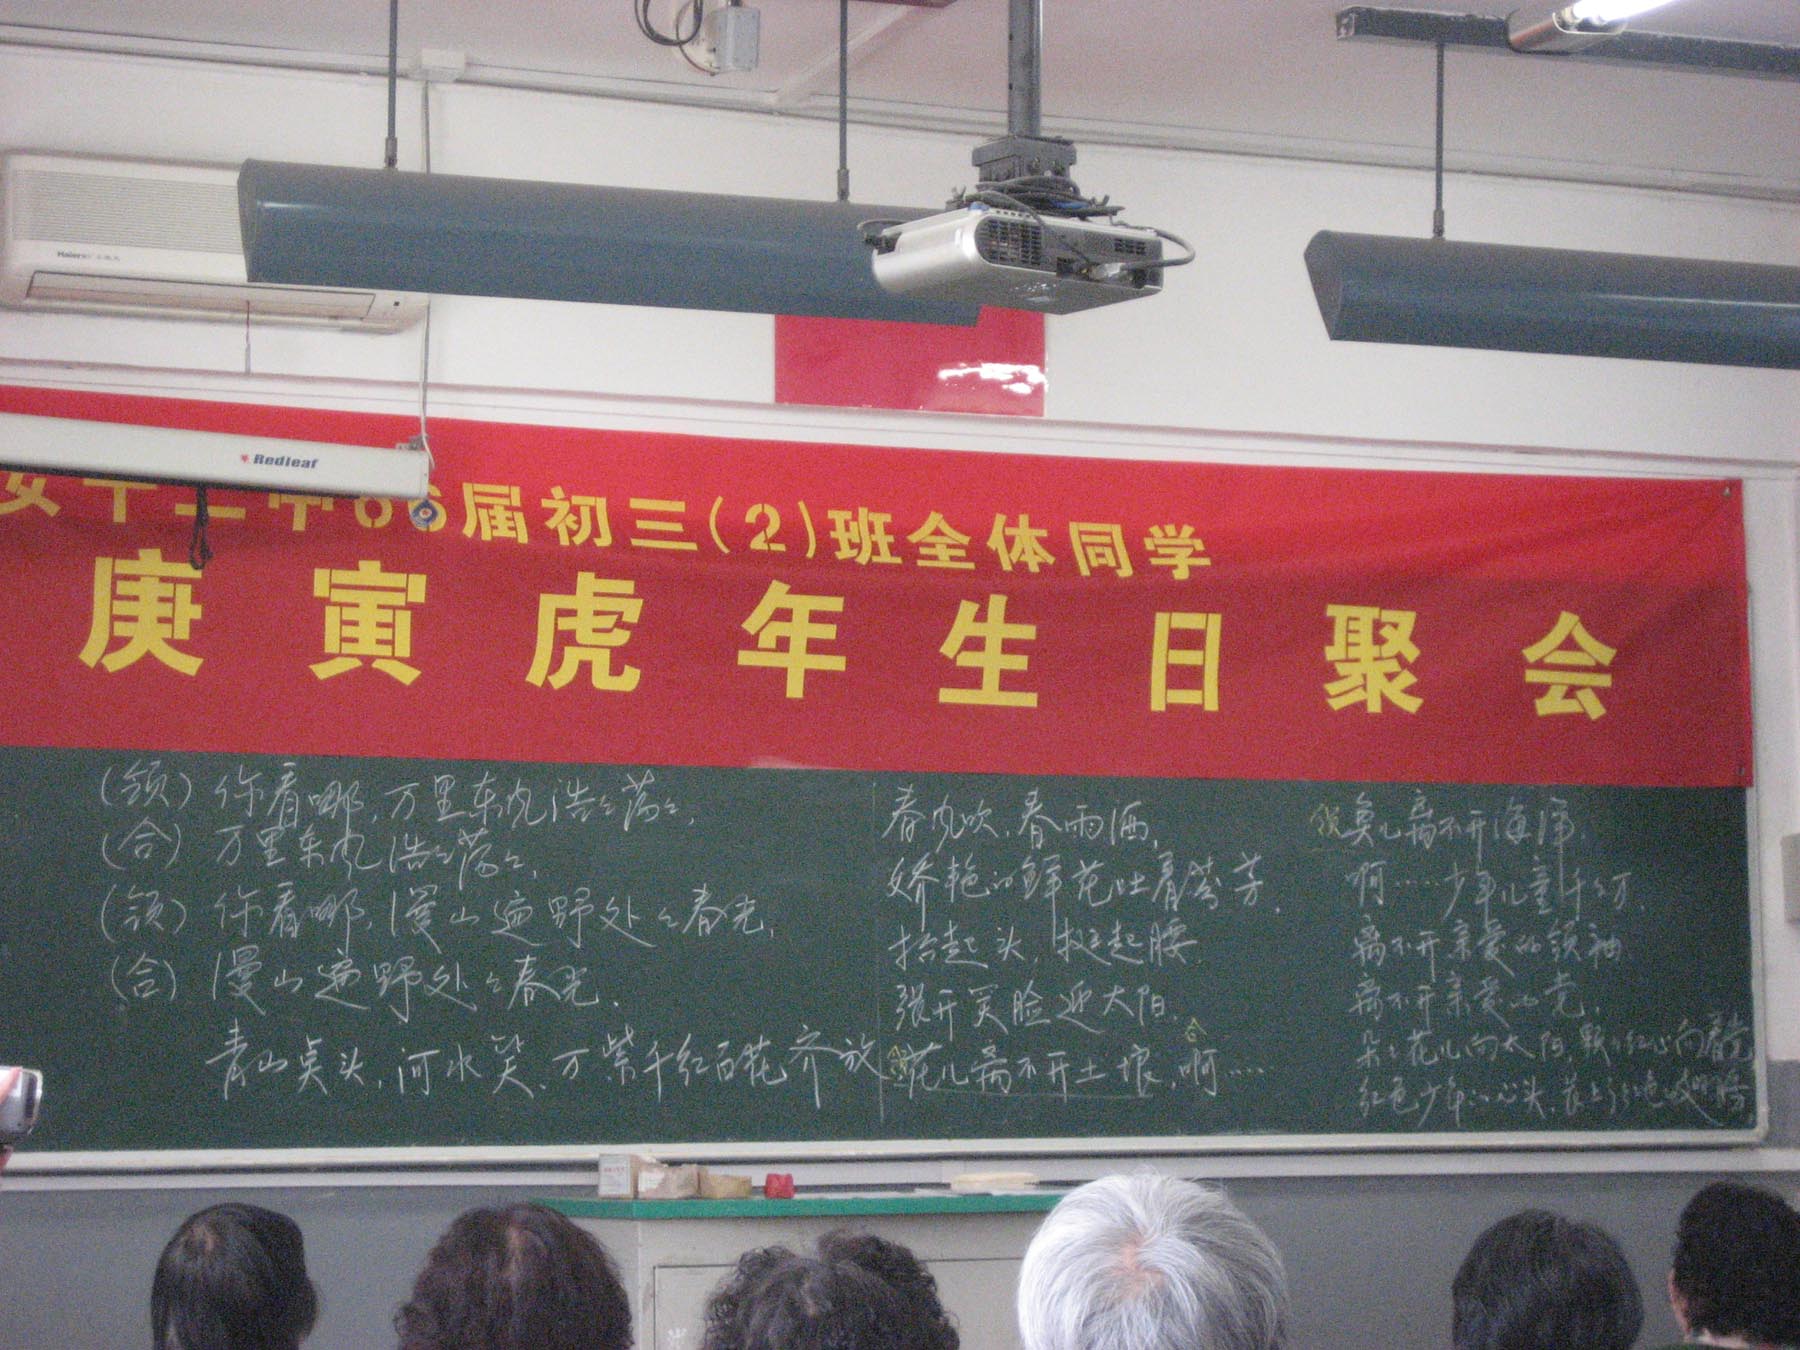 Haier
Redleaf
女十二中66届初三(2)班全体同学
庚寅虎年生日聚会
(领) 你看哪,万里东风浩々荡々,
(合) 万里东风浩々荡々,
(领) 你看哪,漫山遍野处々春光,
(合) 漫山遍野处々春光.
青山点头,河水笑,万紫千红百花齐放
春风吹,春雨洒,
娇艳的鲜花吐着芬芳.
抬起头,挺起腰
张开笑脸迎太阳.
花儿离不开土壤,啊……
合
鱼儿离不开海洋.
啊……少年儿童千千万,
离不开亲爱的领袖
离不开亲爱的党.
朵々花儿向太阳,颗々红心向着党
红色少年の心头,装上红色的翅膀